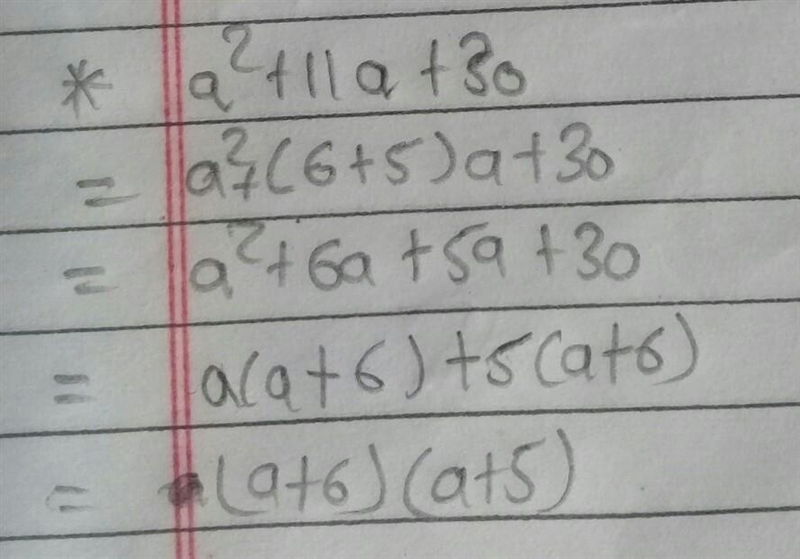 * a²+11a+30
= a²+(6+5)a+30
= a²+6a+5a+30
= a(a+6)+5(a+6)
= (a+6)(a+5)